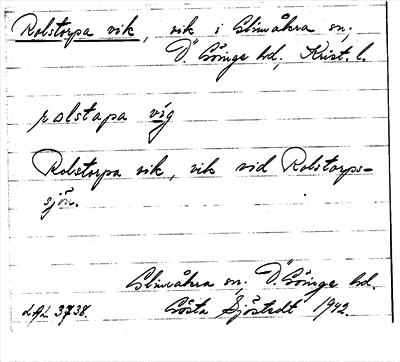 Rolstorpa vik, vik i Glimåkra sn,
Ö. Göinge hd, Krist. l.
rolstapa vig
Rolstorpa vik, vik vid Rolstorps-
sjön.
Glimåkra sn, Ö. Göinge hd.
Gösta Sjöstedt 1942.
LAL 3738.